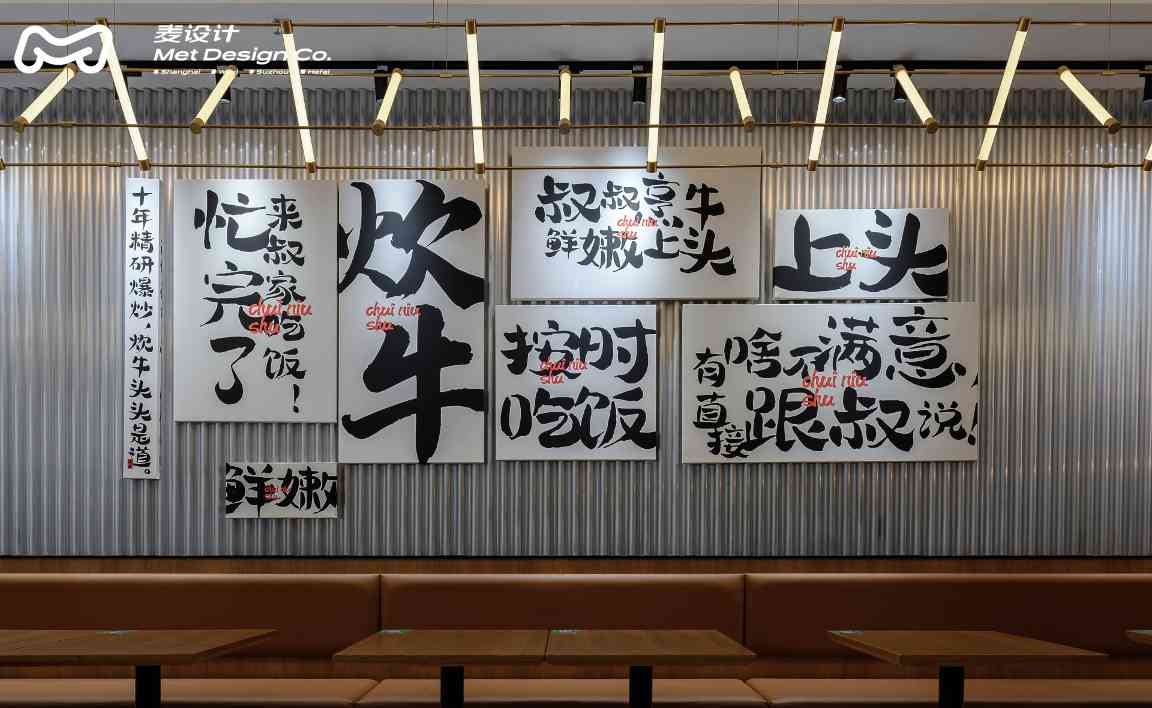 麦设计
Met Design Co.
Shanghai Wuxi Suzhou Hefei
十年精研爆炒，炊牛头头是道。
忙完了
来叔家吃饭！
chui niu
shu
炊牛
chui niu
shu
叔叔烹牛
鲜嫩上头
chui niu
shu
上头
chui niu
shu
按时
吃饭
chui niu
shu
有啥不满意，
直接跟叔说！
chui niu
shu
鲜嫩
chui niu
shu